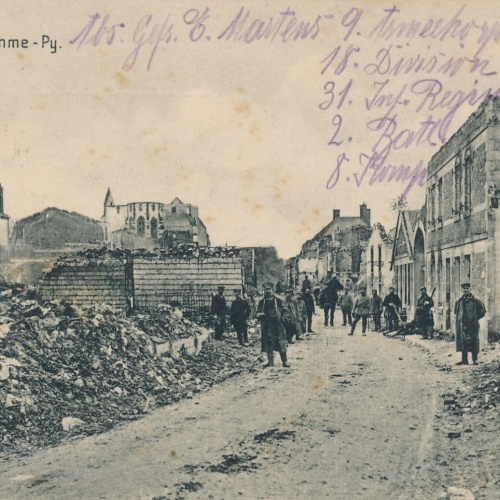 mme-Py.
Abs. Gefr. E. Martens 9. Armeekorps
18. Division
31. Inf. Regim
2. Batl
8. Komp